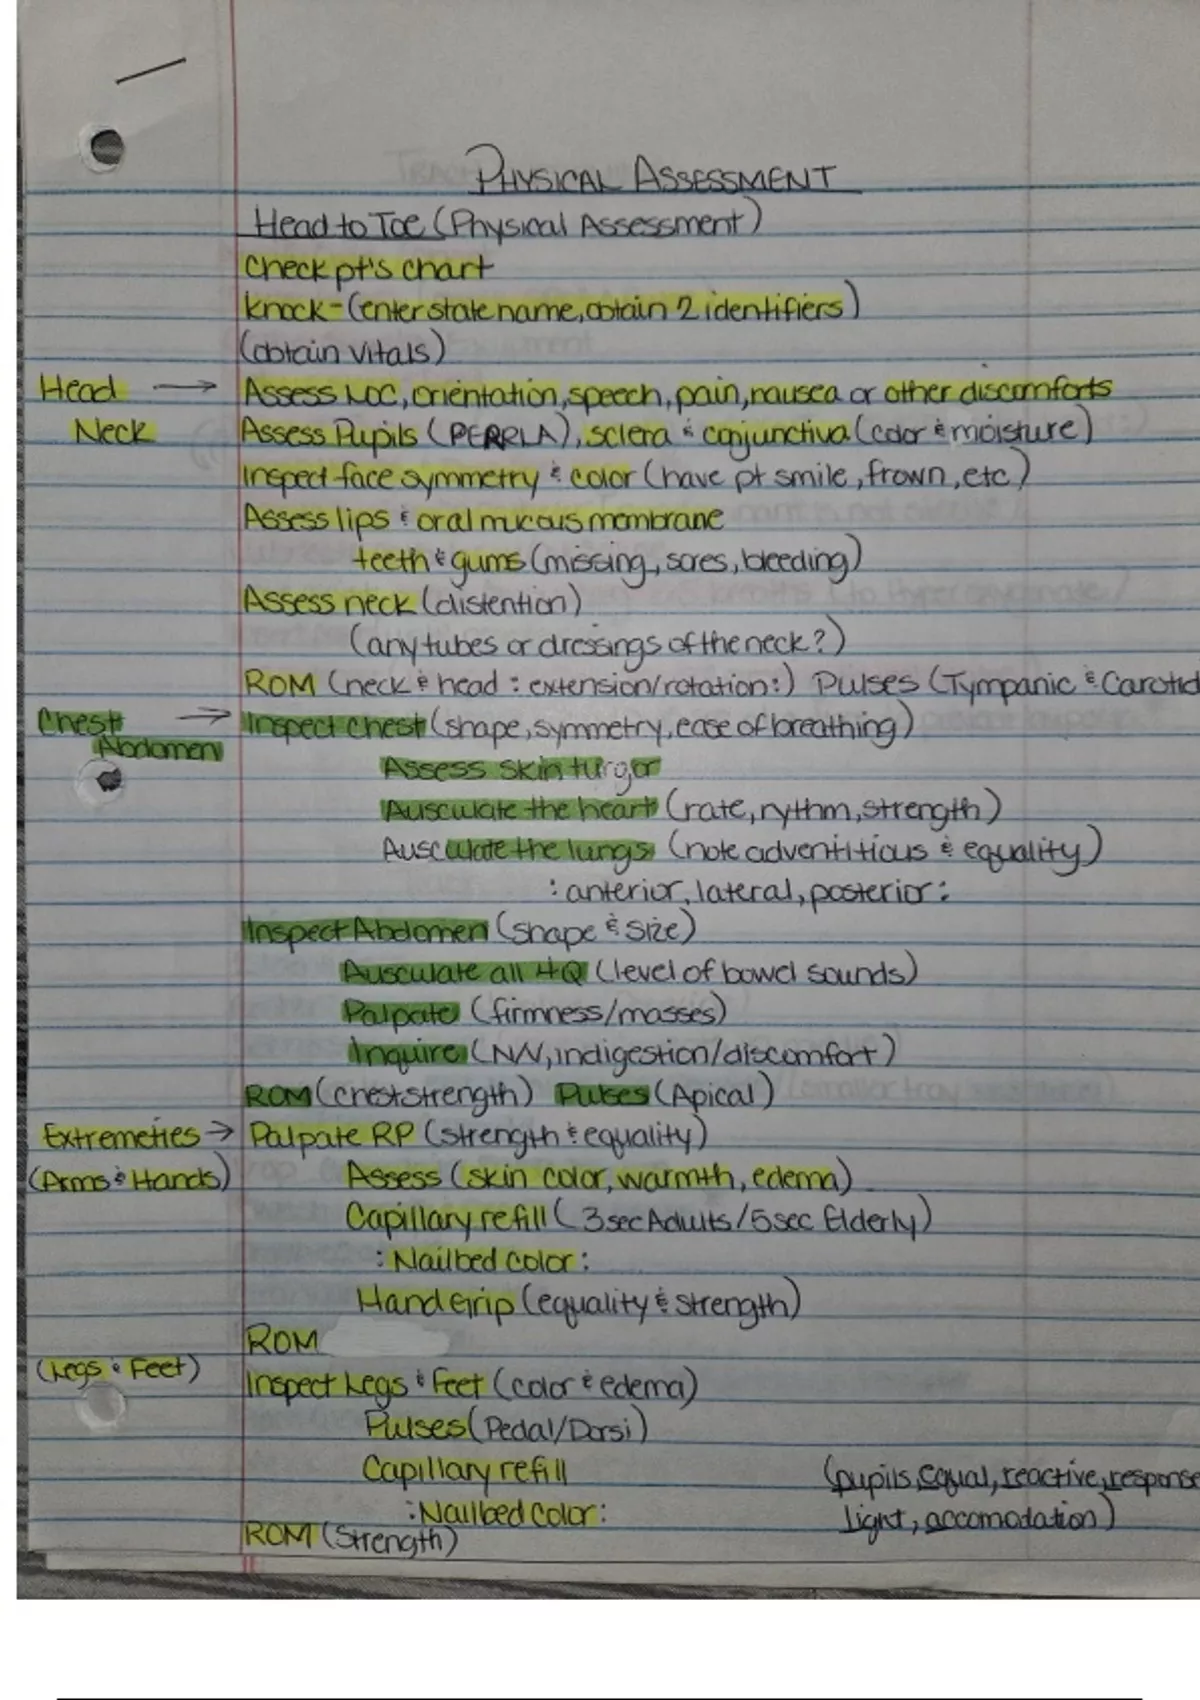 PHYSICAL ASSESSMENT
Head to Toe (Physical Assessment)
Check pt's chart
knock - (enter state name, obtain 2 identifiers)
(obtain vitals)
Head → Assess LOC, orientation, speech, pain, nausea or other discomforts
Neck Assess Pupils (PERRLA), sclera & conjunctiva (color & moisture)
Inspect face symmetry & color (have pt smile, frown, etc.)
Assess lips & oral mucous membrane
teeth & gums (missing, sores, bleeding)
Assess neck (distention)
(any tubes or dressings of the neck?)
ROM (neck & head : extension/rotation:) Pulses (Tympanic & Carotid
Chest → Inspect chest (shape, symmetry, ease of breathing)
Abdomen
Assess skin turgor
Ausculate the heart (rate, rythm, strength)
Ausculate the lungs (note adventitious & equality)
: anterior, lateral, posterior :
Inspect Abdomen (shape & size)
Ausculate all 4Q (level of bowel sounds)
Palpate (firmness/masses)
Inquire (N/V, indigestion/discomfort)
ROM (chest strength) Pulses (Apical)
Extremeties → Palpate RP (strength & equality)
(Arms & Hands) Assess (skin color, warmth, edema)
Capillary refill ( 3 sec Adults / 5 sec Elderly)
: Nailbed color :
Hand Grip (equality & strength)
ROM
(Legs & Feet) Inspect Legs & Feet (color & edema)
Pulses (Pedal/Dorsi)
Capillary refill (pupils, equal, reactive, response
: Nailbed color : light, accomodation)
ROM (Strength)